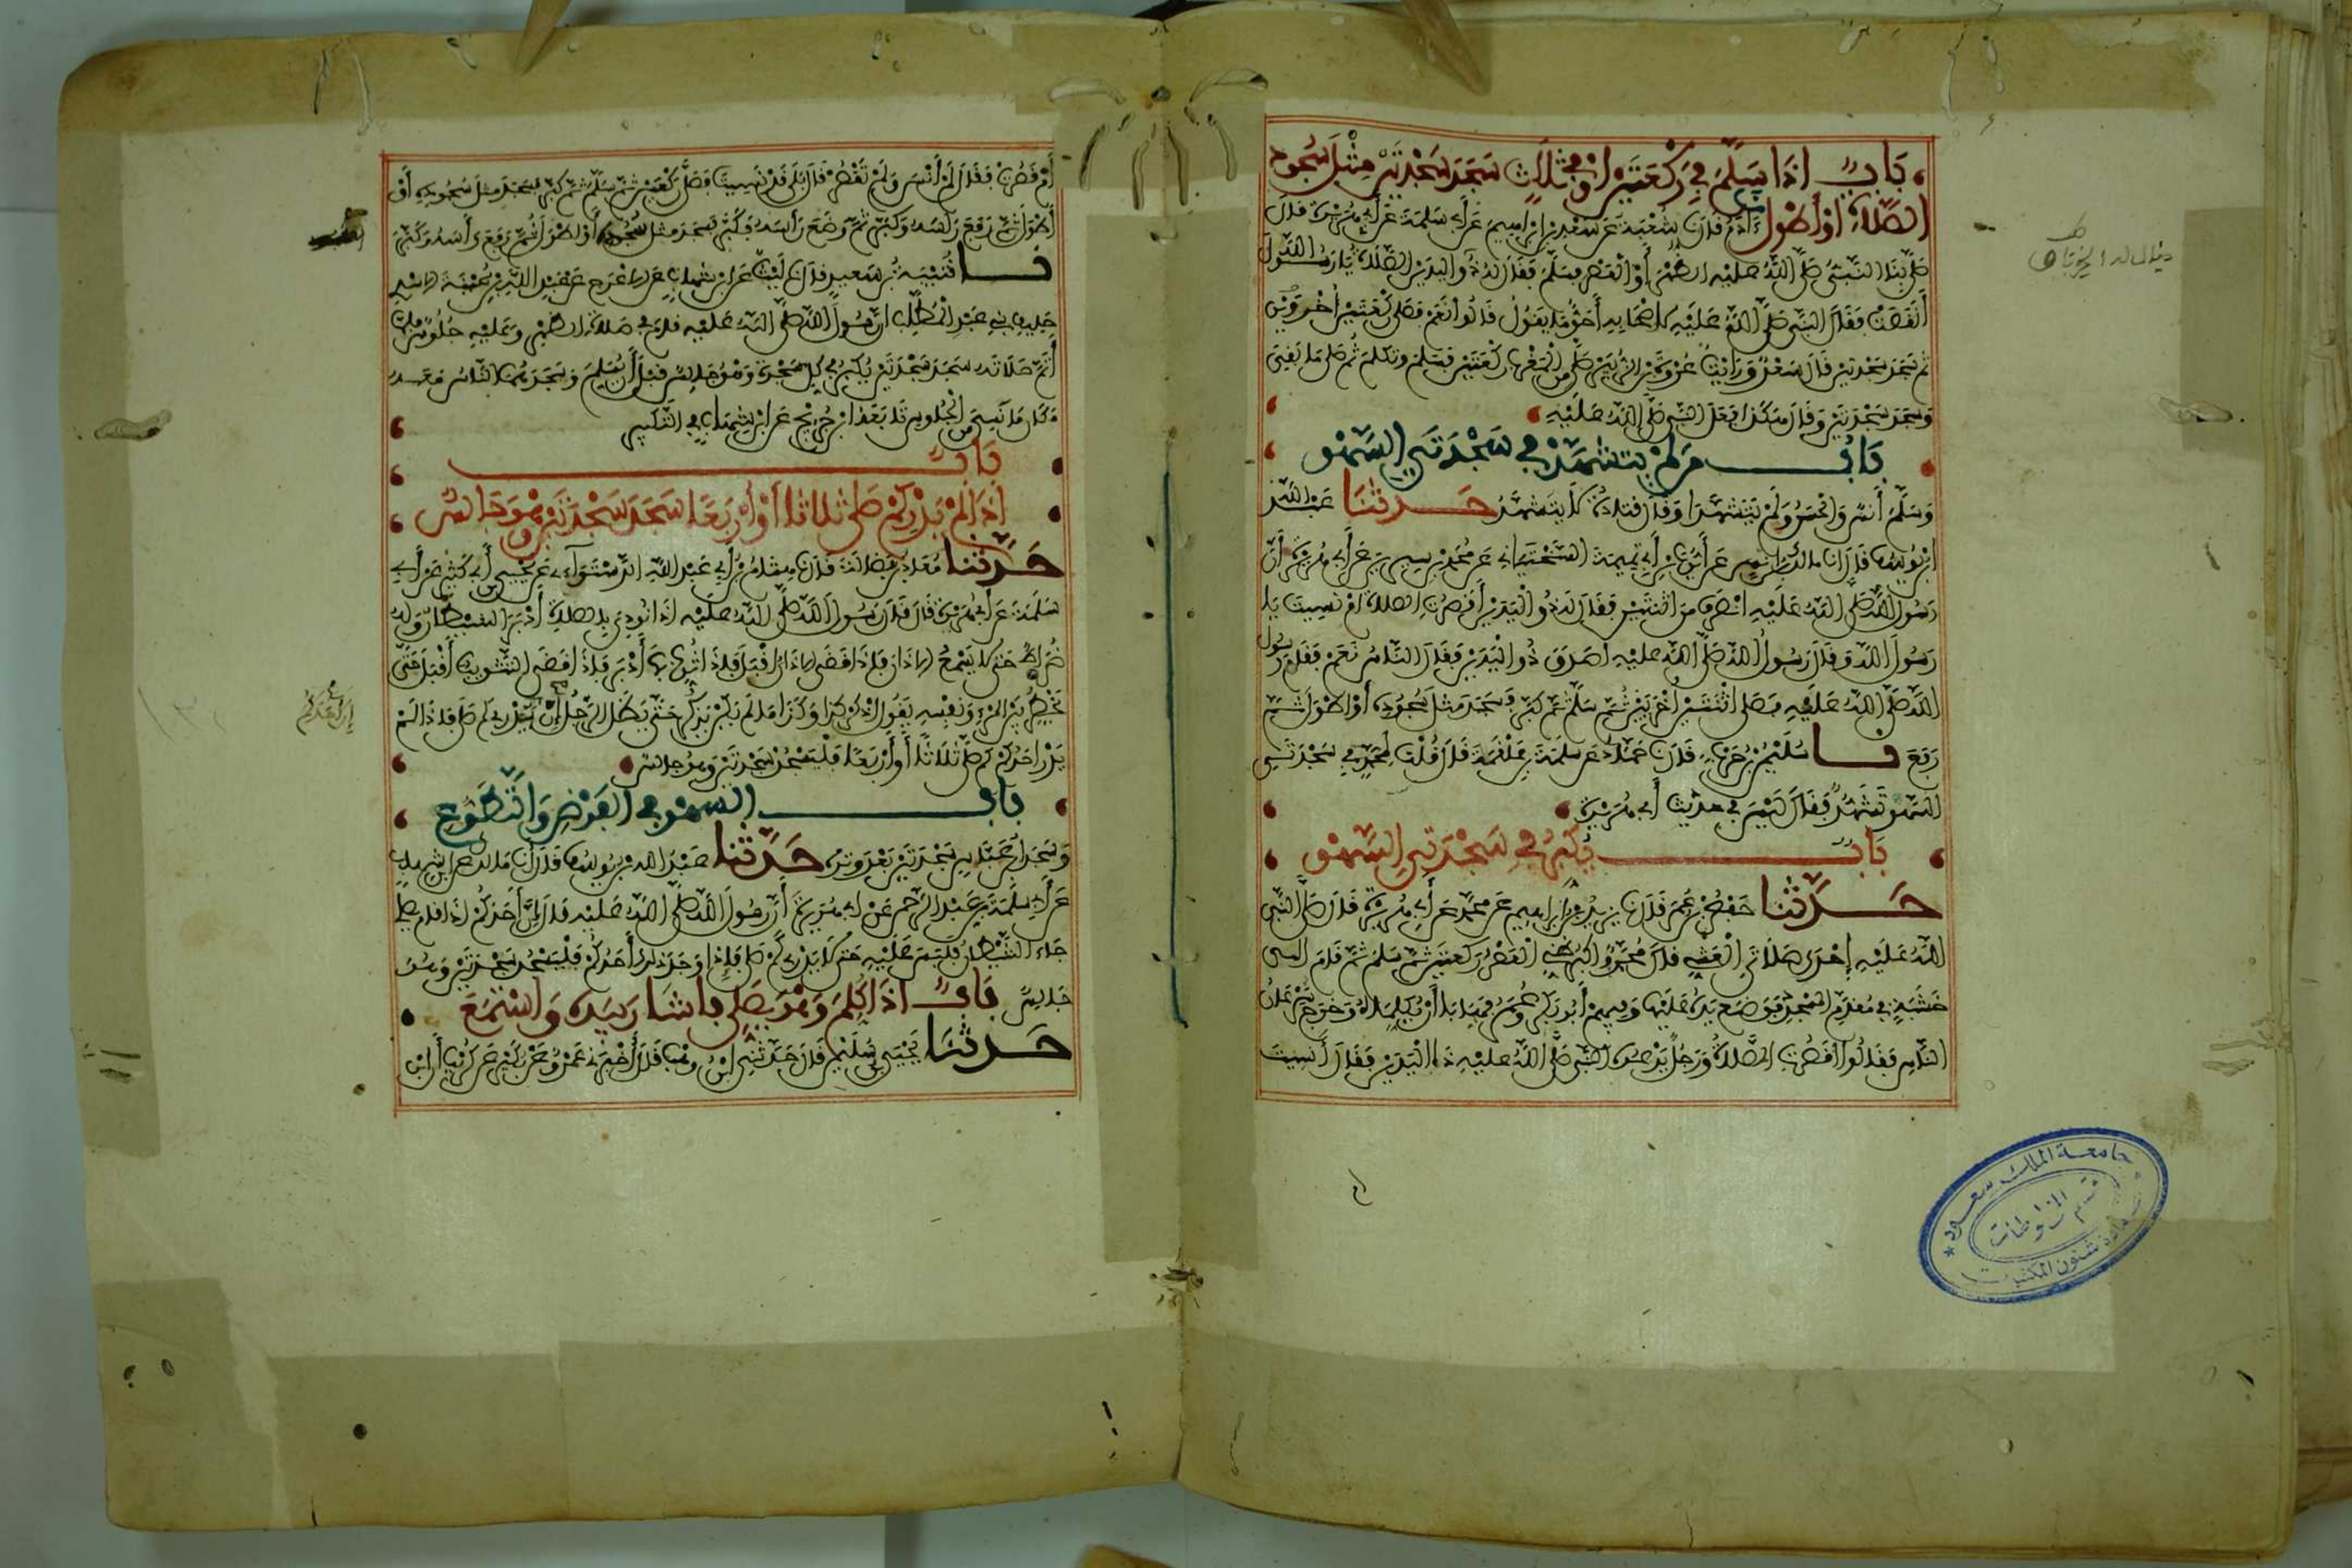 باب اذا سلم في ركعتين او في ثلاث سجد سجدتين مثل سجود
الصلاة او اطول نا ءادم قال نا شعبة عن سعد بن ابراهيم عن أبي سلمة عن أبي هريرة قال
صلى بنا النبي صلى الله عليه الظهر أو العصر فسلم فقال له ذو اليدين الصلاة يا رسول الله
أنقصت فقال النبي صلى الله عليه لاصحابه أحق ما يقول قالوا نعم فصلى ركعتين أخروين
ثم سجد سجدتين قال سعد ورأيت عروة بن الزبير صلى من المغرب ركعتين فسلم وتكلم ثم صلى ما بقي
وسجد سجدتين وقال هكذا فعل النبي صلى الله عليه
باب من لم يتشهد في سجدتي السهو
وسلم أنس والحسن ولم يتشهدا وقال قتادة لا يتشهد حدثنا عبد الله
ابن يوسف قال انا مالك بن انس عن أيوب بن أبي تميمة السختياني عن محمد بن سيرين عن أبي هريرة أن
رسول الله صلى الله عليه انصرف من اثنتين فقال له ذو اليدين أقصرت الصلاة ام نسيت يا
رسول الله فقال رسول الله صلى الله عليه اصدق ذو اليدين فقال الناس نعم فقام رسول
الله صلى الله عليه فصلى اثنتين أخريين ثم سلم ثم كبر فسجد مثل سجوده أو اطول ثم
رفع نا سليمن بن حرب قال نا حماد عن سلمة بن علقمة قال قلت لمحمد في سجدتي
السهو تشهد فقال ليس في حديث أبي هريرة
باب يكبر في سجدتي السهو
حدثنا حفص بن عمر قال نا يزيد بن ابراهيم عن محمد عن أبي هريرة قال صلى النبي
الله عليه إحدى صلاتي العشي قال محمد واكثر ظني العصر ركعتين ثم سلم ثم قام الى
خشبة في مقدم المسجد فوضع يده عليها وفيهم أبو بكر وعمر فهابا أن يكلماه وخرج سرعان
الناس فقالوا أقصرت الصلاة ورجل يدعوه النبي صلى الله عليه ذا اليدين فقال أنسيت
أم قصرت فقال لم أنس ولم تقصر قال بلى قد نسيت فصلى ركعتين ثم سلم ثم كبر فسجد مثل سجوده أو
أطول ثم رفع رأسه وكبر ثم وضع رأسه فكبر فسجد مثل سجوده أو اطول ثم رفع رأسه وكبر
نا قتيبة بن سعيد قال نا ليث عن ابن شهاب عن الاعرج عن عبد الله بن بحينة الاسدي
حليف بني عبد المطلب ان رسول الله صلى الله عليه قام في صلاة الظهر وعليه جلوس فلما
أتم صلاته سجد سجدتين يكبر في كل سجدة وهو جالس قبل أن يسلم وسجدهما الناس معه
مكان ما نسي من الجلوس تابعه ابن جريج عن ابن شهاب في التكبير
باب
اذا لم يدركم صلى ثلاثا أو أربعا سجد سجدتين وهو جالس
حدثنا معاذ بن فضالة قال نا هشام بن أبي عبد الله الدستوآءي عن يحيى بن أبي كثير عن أبي
سلمة عن أبي هريرة قال قال رسول الله صلى الله عليه اذا نودي بالصلاة أدبر الشيطان وله
ضراط حتى لا يسمع الاذان فاذا قضي الاذان اقبل فاذا ثوب بها أدبر فاذا قضي التثويب أقبل حتى
يخطر بين المرء ونفسه يقول اذكر كذا وكذا ما لم يكن يذكر حتى يظل الرجل إن يدري كم صلى فاذا لم
يدر احدكم كم صلى ثلاثا أو أربعا فليسجد سجدتين وهو جالس
باب السهو في الفرض والتطوع
وسجد ابن عباس سجدتين بعد وتره حدثنا عبد الله بن يوسف قال انا مالك عن ابن شهاب
عن أبي سلمة بن عبد الرحمن عن ابي هريرة أن رسول الله صلى الله عليه قال إن أحدكم اذا قام يصلي
جاء الشيطان فلبس عليه حتى لا يدري كم صلى فاذا وجد ذلك أحدكم فليسجد سجدتين وهو
جالس باب اذا كلم وهو يصلي فاشار بيده واستمع
حدثنا يحيى بن سليمن قال حدثني ابن وهب قال أخبرني عمرو عن بكير عن كريب أن ابن
جامعة الملك سعود
قسم المخطوطات
عمادة شئون المكتبات